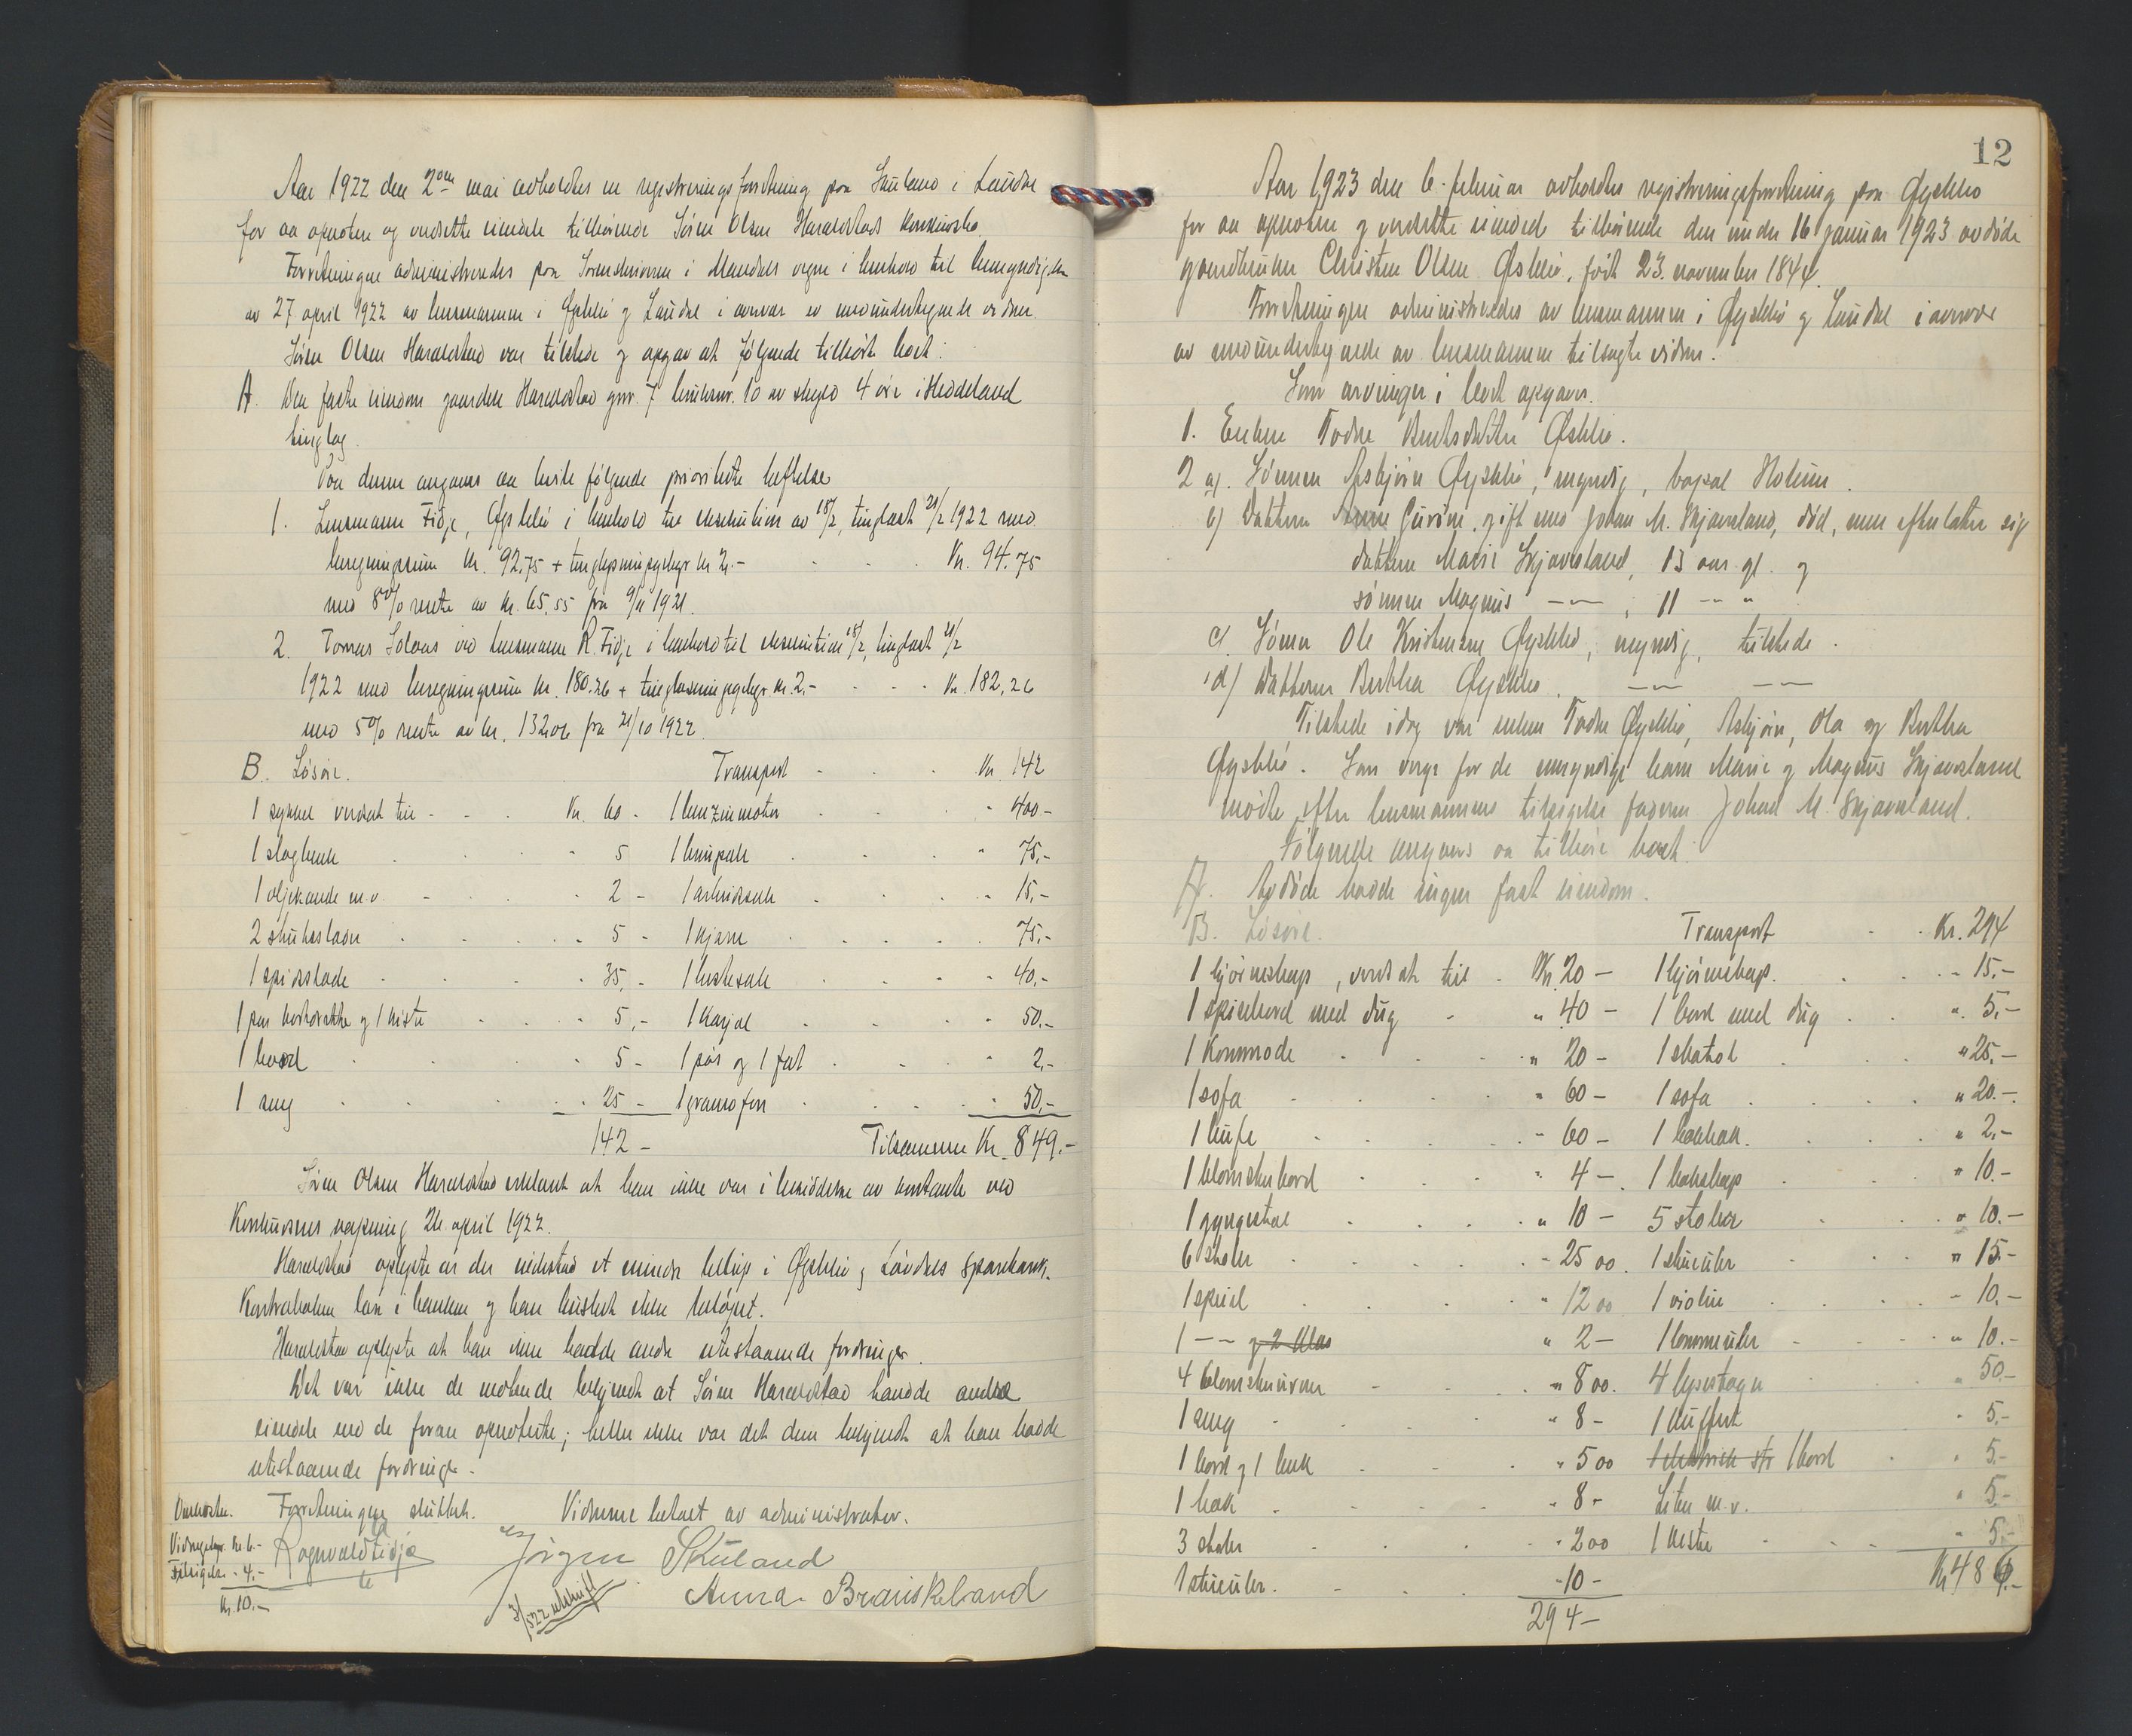 Aar 1922 den 2den mai avholdtes en registreringsforretning paa Skuland i Laudal
for aa opnotere og verdsette eiendele tilhørende Sören Olsen Haraldstads konkursbo.
Forretningen administreredes paa Sorenskriveren i Mandals vegne i henhold til bemyndigelse
av 27 april 1922 av lensmannen i Øyslebø og Laudal i nærvær av medundertegnede vidner
Sören Olsen Haraldstad var tilstede og opgav at følgende tilhørte boet:
A. Den faste eiendom gaarden Haraldstad gnr. 7 bruksnr. 10 av skyld 4 øre i Heddeland
tinglag.
Paa denne angaves aa hvile følgende prioriterte heftelser
1. Lensmann Fidje, Øyslebø i henhold til eksekution av 18/2, tinglæst 21/2 1922 med
beregningssum kr. 92.75 + tinglysningsgebyr kr 2.- Kr. 94.75
med 8% rente av kr. 65,55 fra 9/11 1921.
2. Tomas Solaas ved lensmann R. Fidje i henhold til eksekution 18/2, tinglæst 21/2
1922 med beregningssum kr. 180.26 + tinglæsningsgebyr kr. 2.- Kr. 182,26
med 5% rente av kr. 132,06 fra 21/10 1922.
B. Løsøre. Transport Kr. 142
1 sykkel verdsat til Kr. 60 - 1 benzinmotor " 400 -
1 slagbenk " 5 1 hjulsæle " 75.-
1 oljekande m.v. 2 - 1 arbeidssæle " 15,-
2 stubslæder " 5 - 1 kjærre 75,-
1 spidsslæde 35,- 1 hestesæle " 40,-
1 par 1 kiste " 5,- 1 karjol " 50.-
1 bord " 5 - 1 pös og 1 fat " 2,-
1 seng " 25 - 1 gramofon " 50,-
142 - Tilsammen Kr. 849.-
Sören Olsen Haraldstad erklærte at han ikke var i besiddelse av kontante ved
Konkursens aapning 26 april 1922.
Haraldstad oplyste at der indestod et mindre beløp i Øyslebø og Laudals Sparebank.
Kontraboken laa i banken og han husket ikke beløpet.
Haraldstad oplyste at han ikke hadde andre utestaaende fordringer.
Det var ikke de mötende bekjendt at Sören Haraldstad havde andre
eiendele end de foran opnoterte; heller ikke var det dem bekjendt at han hadde
utestaaende fordringer.
Omkostn. Forretningen sluttet. Vidnene betalt av administrator.
Vidnegodtgj. kr. 6.-
Tilsigelse - 4.-
Kr. 10.-
Ragnvald Fidje
Jörgen Skuland
Anna Brauskeland
3/5 22 utskrift
12
Aar 1923 den 6. februar avholdtes registreringsforretning paa Øyslebø
for aa opnotere og verdsette eiendele tilhörende den under 16 januar 1923 avdöde
gaardbruker Christen Olsen Øslebö, födt 23. november 1844.
Forretningen administreredes av lensmannen i Øyslebö og Laudal i nærvær
av medundertegnede av lensmannen tilsagte vidner.
Som arvinger i boet opgaves.
1. Enken Todne Berntsdatter Øslebö.
2 a). Sönnen Asbjörn Øyslebö, myndig, bopæl Holum.
b) Datteren Anne Gurine, gift med Johan M. Skjævesland, död, men efterlatter sig
datteren Marie Skjævesland, 13 aar gl. og
sönnen Magnus -"- , 11 -"- "
c) Sönnen Ole Kristensen Øyslebö, myndig, tilstede.
d) Datteren Bertha Øyslebö. -"- -"-
Tilstede idag var enken Todne Øyslebö, Asbjörn, Ola og Bertha
Øyslebö. Som verge for de umyndige barn Marie og Magnus Skjævesland
mötte efter lensmannens tilsigelse faderen Johan M. Skjævesland.
Følgende angaves aa tilhöre boet.
A. Avdöde hadde ingen fast eiendom.
B. Lösöre. Transport Kr. 294
1 hjörneskap, verdsat til Kr. 20 - 1 hjörneskap. - 15.-
1 spisebord med dug " 40 - 1 bord med dug " 5.-
1 Kommode " 20 - 1 skatol " 25.-
1 sofa " 60 - 1 sofa " 20.-
1 buffe - 60 - 1 bokhak. " 2.-
1 blomsterbord " 4 - 1 bokskap " 10.-
1 gyngestol " 10 - 5 stoler " 10.-
6 stoler - 25 00. 1 stueuhr " 15.-
1 speil " 12 00 1 violin - 10.-
1 -"- og 2 glas " 2 - 1 lommeuhr " 10.-
4 blomsterurner " 8 00. 4 lysestager " 50.-
1 seng " 8 - 1 kuffert " 5.-
1 bord og 1 benk " 5 00 1 bord " 5.-
1 hak " 8 - Liter m.v. " 5.-
3 stoler " 2 00 1 kiste " 5.-
1 stueuhr. - 10 - Kr 486.-
294 -